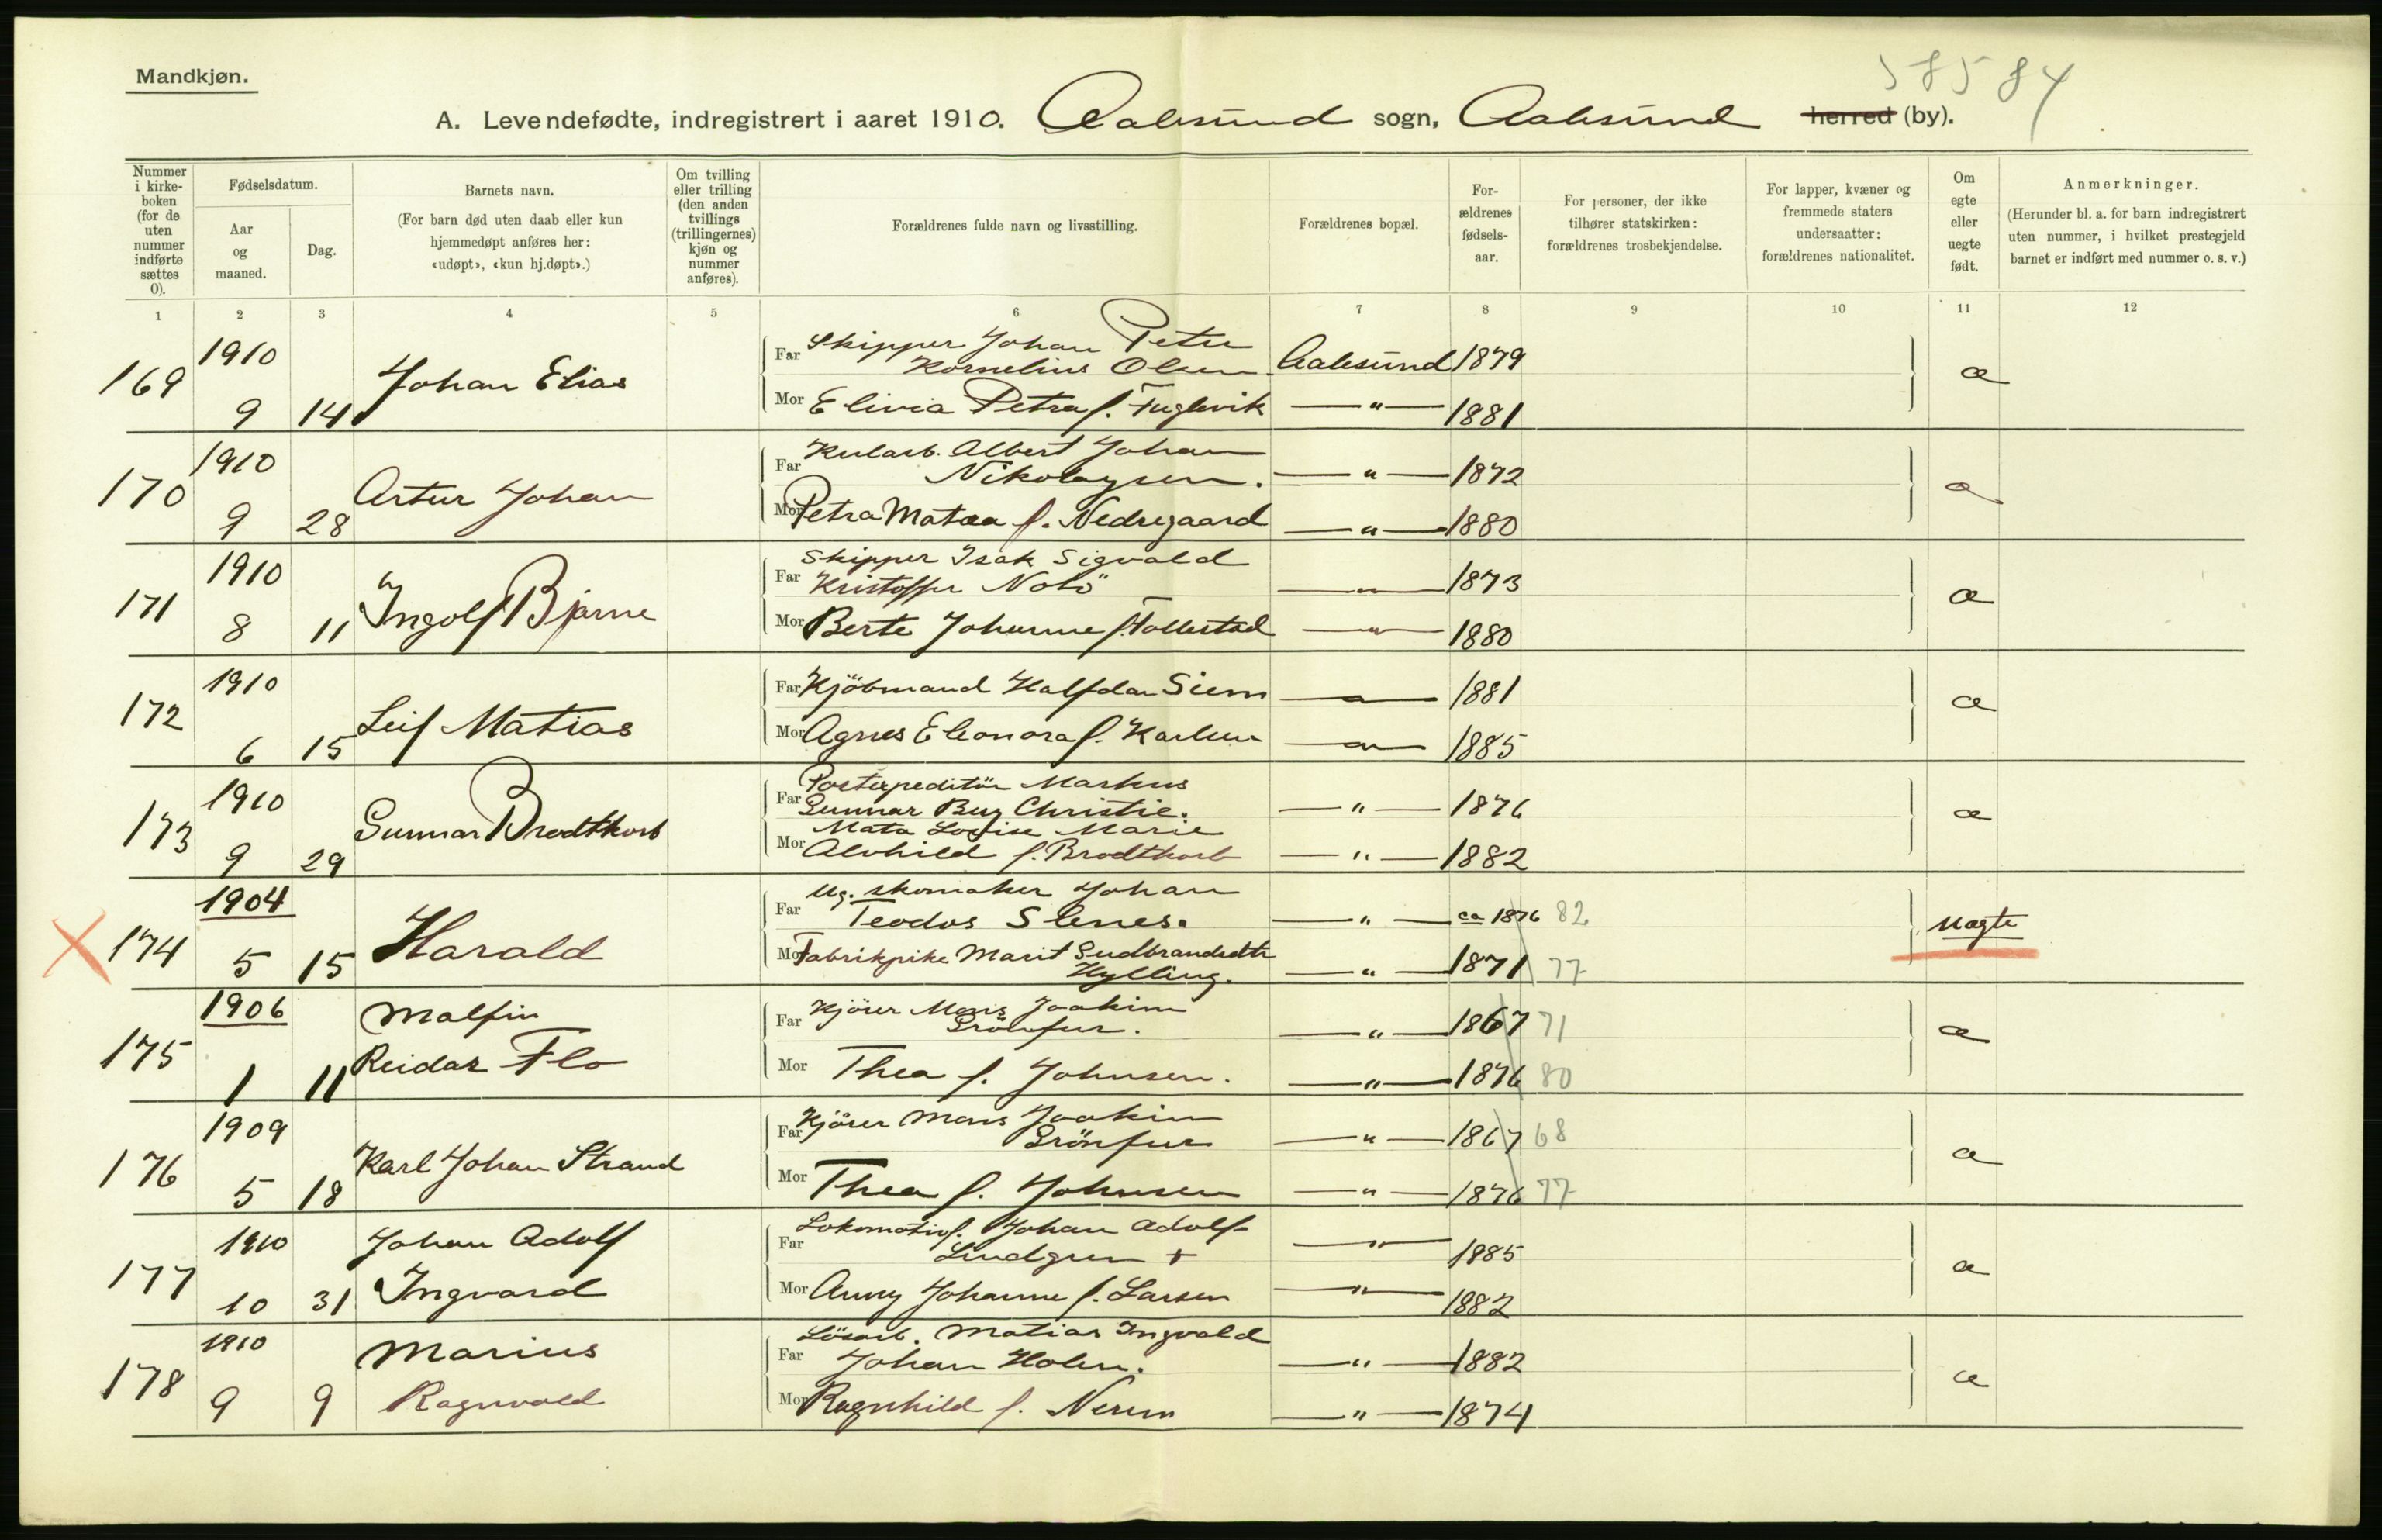 58584
Mandkjøn.
A. Levendefødte, indregistrert i aaret 1910. Aalesund sogn, Aalesund herred (by).
Nummer i kirkeboken (for de uten nummer indførte sættes 0).
Fødselsdatum.
Aar og maaned.
Dag.
Barnets navn.
(For barn død uten daab eller kun hjemmedøpt anføres her: «udøpt», «kun hj.døpt».)
Om tvilling eller trilling (den anden tvillings (trillingernes) kjøn og nummer anføres).
Forældrenes fulde navn og livsstilling.
Forældrenes bopæl.
Forældrenes fødselsaar.
For personer, der ikke tilhører statskirken: forældrenes trosbekjendelse.
For lapper, kvæner og fremmede staters undersaatter: forældrenes nationalitet.
Om egte eller uegte født.
Anmerkninger.
(Herunder bl. a. for barn indregistrert uten nummer, i hvilket prestegjeld barnet er indført med nummer o. s. v.)
1 2 3 4 5 6 7 8 9 10 11 12
169 1910 9 14 Johan Elias
Far Skipper Johan Peter
Kornelius Olsen Aalesund 1879 æ
Mor Elivia Petra f. Fuglevik — " — 1881
170 1910 9 28 Artur Johan
Far Kularb. Albert Johan
Nikolaysen. — " — 1872 æ
Mor Petra Matea f. Nedregaard — " — 1880
171 1910 8 11 Ingolf Bjarne
Far Skipper Isak Sigvald
Kristoffer Notö — " — 1873 æ
Mor Berte Johanne f. Tollestad — " — 1880
172 1910 6 15 Leif Matias
Far Kjöbmand Halfdan Siem — " — 1881 æ
Mor Agnes Eleonora f. Karlsen — " — 1885
173 1910 9 29 Gunnar Brodtkorb
Far Postexpeditör Markus
Gunnar Bug Christie. — " — 1876 æ
Mata Lovise Marie
Mor Alvhild f. Brodtkorb — " — 1882
174 1904 5 15 Harald
Far Ug. skomaker Johan
Teodos Slenes. — " — ca 1876 82 uægte
Mor Fabrikpike Marit Gudbrandsdtr
Hylling. — " — 1871 77
175 1906 1 11 Malfin
Reidar Flo
Far Kjörer Mons Joakim
Grönfur. — " — 1867 71 æ
Mor Thea f. Johnsen. — " — 1876 80
176 1909 5 18 Karl Johan Strand
Far Kjörer Mons Joakim
Grönfur — " — 1867 68 æ
Mor Thea f. Johnsen — " — 1876 77
177 1910 10 31 Johan Adolf
Ingvard
Far Lokomotivf. Johan Adolf
Lindgren + — " — 1885 æ
Mor Anny Johanne f. Larsen — " — 1882
178 1910 9 9 Marius
Ragnvald
Far Lösarb. Matias Ingvald
Johan Holen. — " — 1882 æ
Mor Ragnhild f. Nerem — " — 1874